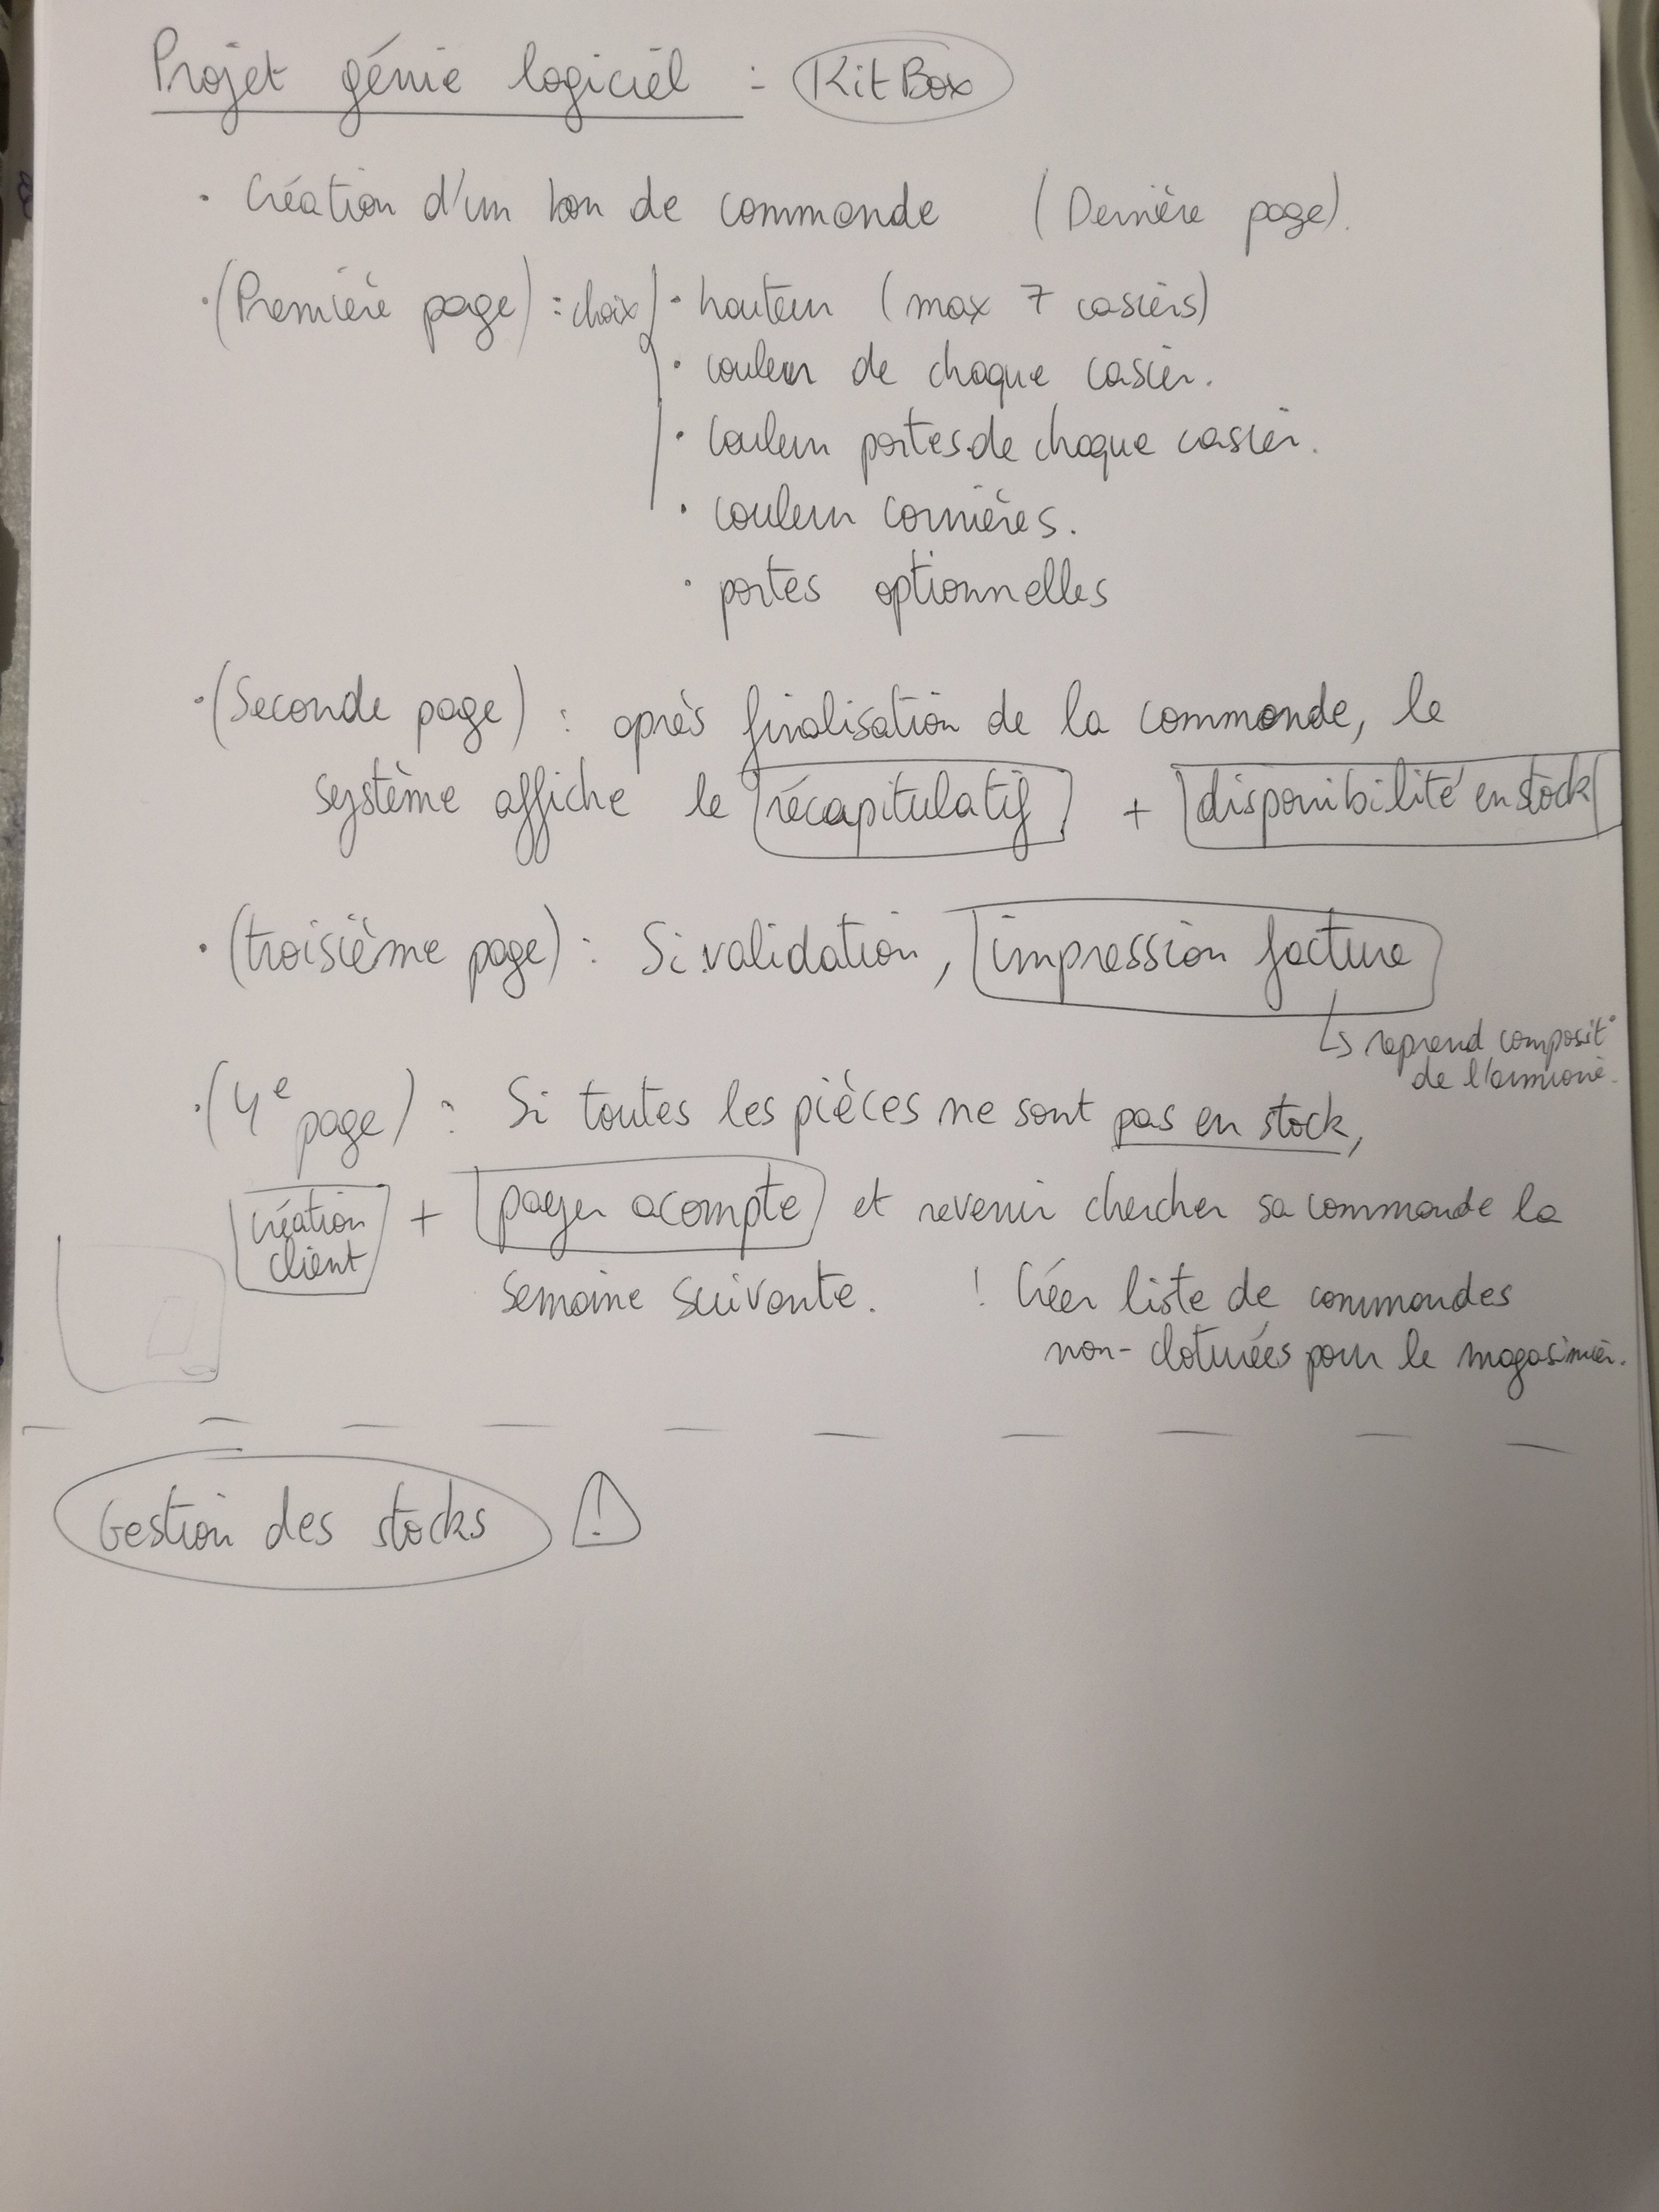 Projet génie logiciel : KitBox
· Création d'un bon de commande (Dernière page).
· (Première page) : choix · hauteur (max 7 casiers)
· couleur de chaque casier.
· couleur portes de chaque casier.
· couleur cornières.
· portes optionnelles
· (Seconde page) : après finalisation de la commande, le
système affiche le récapitulatif + disponibilité en stock
· (troisième page) : Si validation, impression facture
↳ reprend composit°
de l'armoire.
· (4e page) : Si toutes les pièces ne sont pas en stock,
création client + payer acompte et revenir chercher sa commande la
semaine suivante. ! Créer liste de commandes
non-cloturées pour le magasinier.
Gestion des stocks !